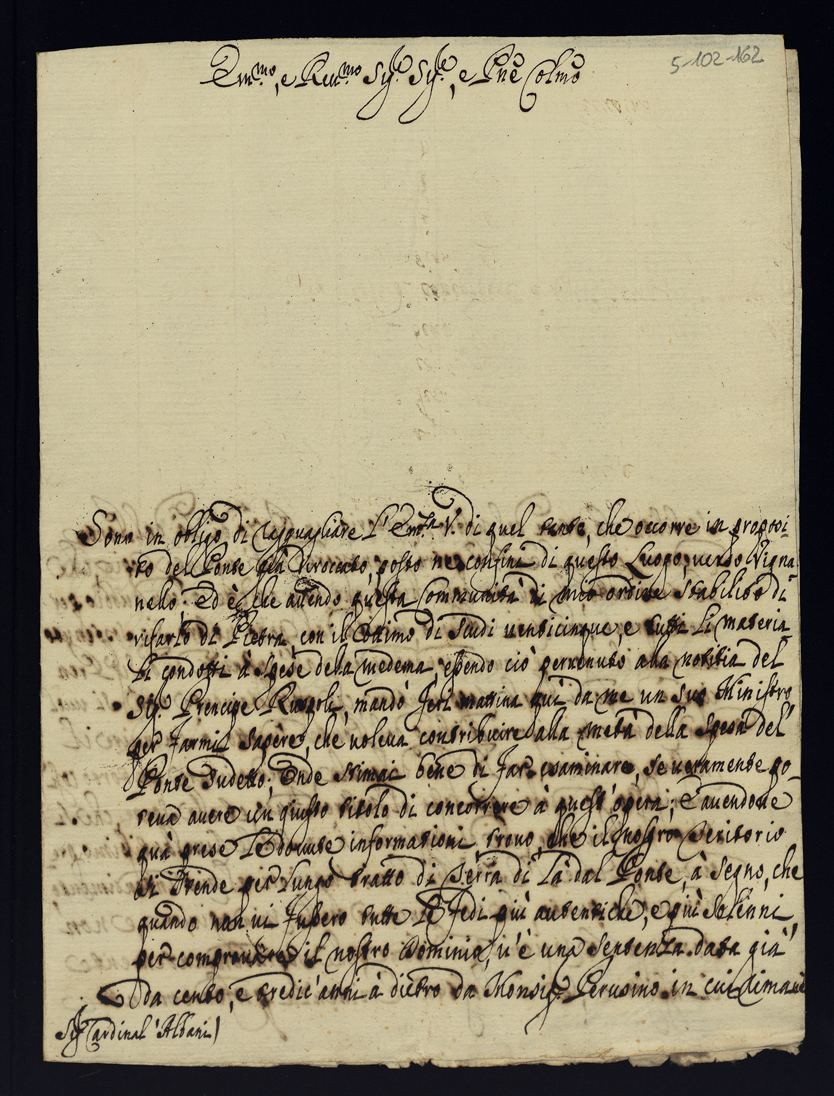 5-102-162
Em.mo, e Rev.mo Sig.re Sig.re, e Pne Colmo
Sono in obligo di ragguagliare l'Em.za V. di quel tanto, che occorre in proposi-
to del Ponte già diroccato, posto ne confini di questo Luogo, verso Vigna-
nello. Ed è, che avendo questa Communità di mio ordine stabilito di
rifarlo di Pietra con il Ottimo di Scudi venticinque, e tutti li materia-
li condotti à spese della medema, essendo ciò pervenuto alla notitia del
Sig. Prencipe Ruspoli, mandò Jeri mattina quì da me un suo Ministro,
per farmi sapere, che voleva contribuire alla metà della spesa del
Ponte sudetto; Onde stimai bene di far esaminare, se veramente po-
teva avere un giusto titolo di concorrere à quest'opera; e avendone
quà prese le dovute informationi, trovo, che il nostro Territorio
si stende per lungo tratto di Terra di là dal Ponte, à segno, che
quando non vi fussero tutte le fedi più autentiche, e più solenni,
per comprovare il nostro Dominio, v'è una sentenza data già
da cento, e tredic'anni à dietro da Monsig. Perusino in cui rimane
Sig. Cardinal Albani)